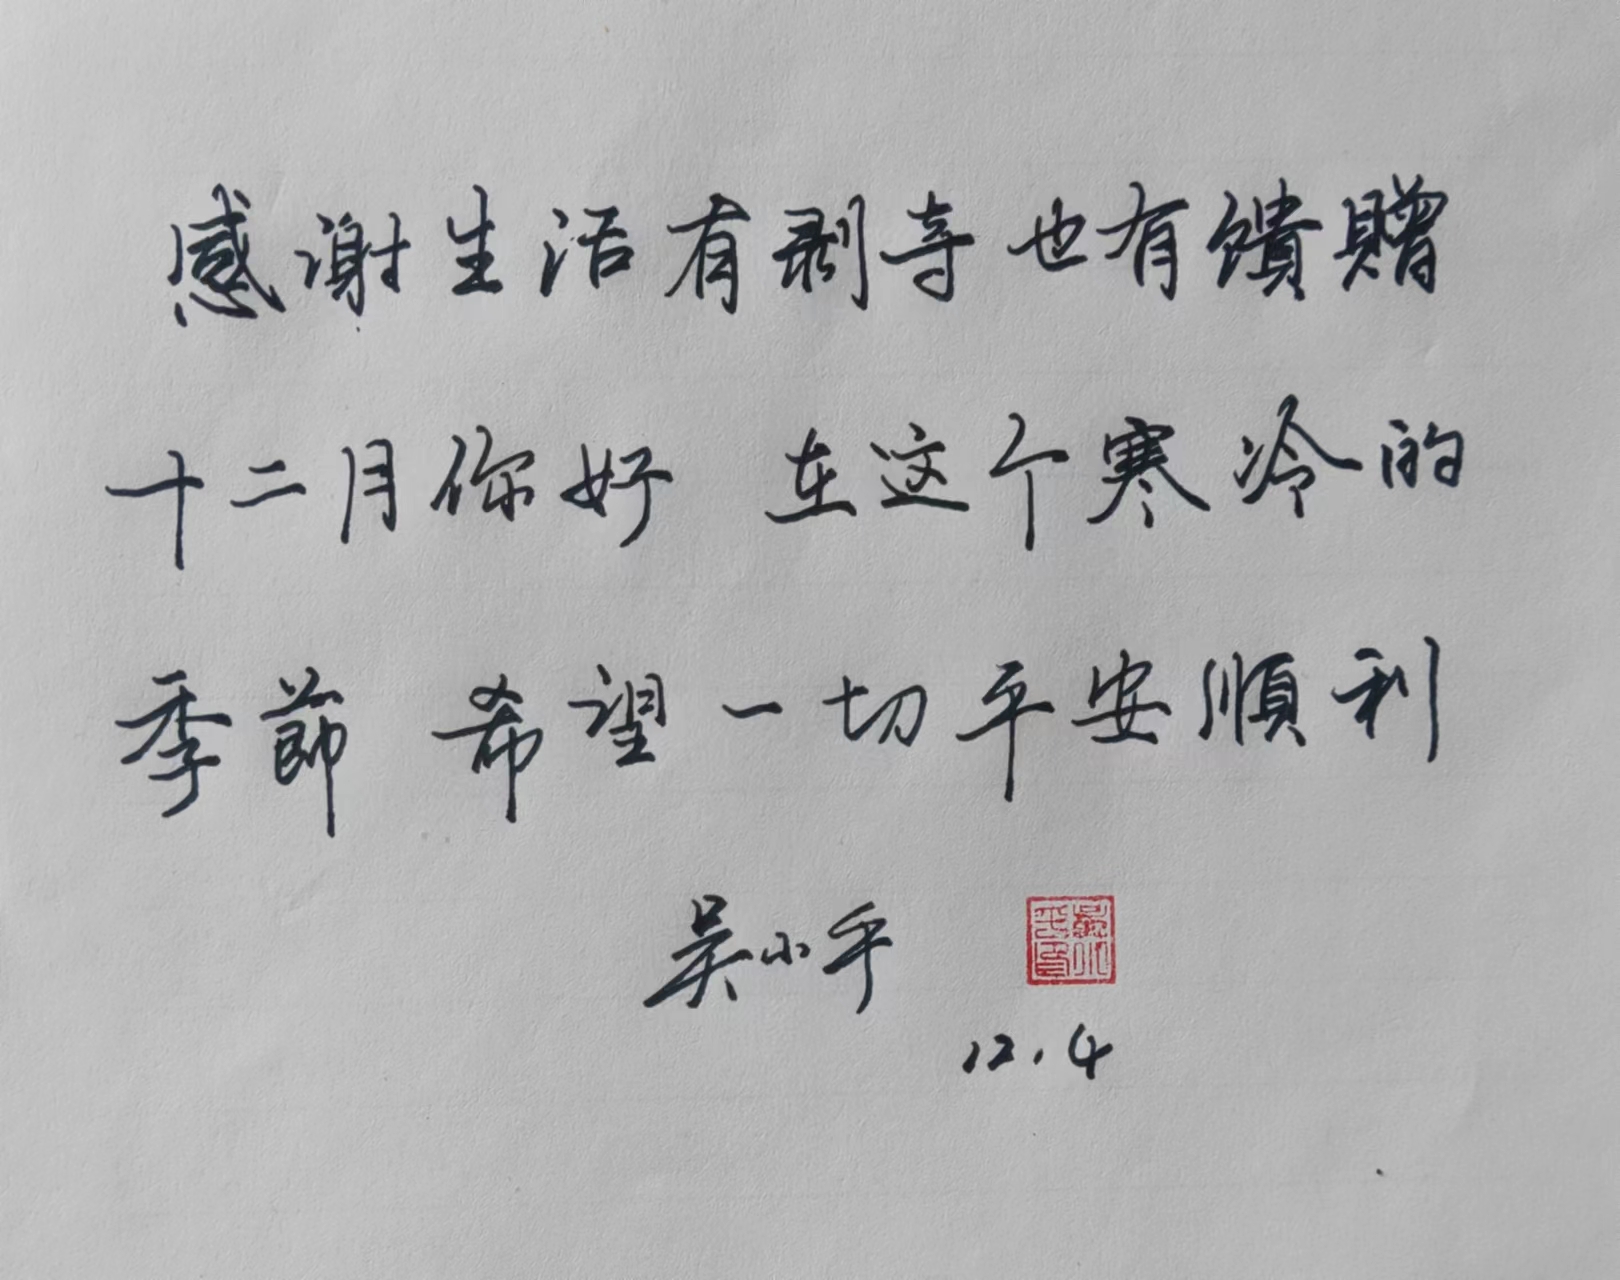 感谢生活有剥夺也有馈赠
十二月你好 在这个寒冷的
季節 希望一切平安順利
吴小平
12.4